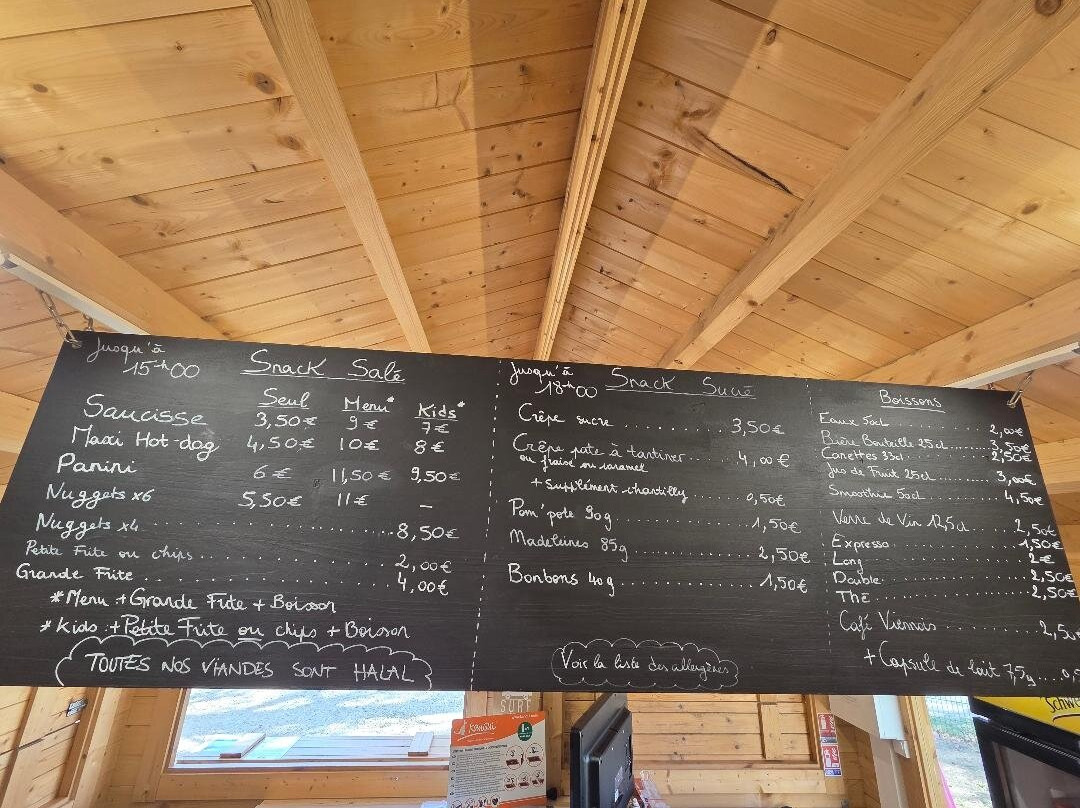 Jusqu'à
15h00
Snack Salé
Seul Menu* Kids*
Saucisse 3,50€ 9€ 7€
Maxi Hot-dog 4,50€ 10€ 8€
Panini 6€ 11,50€ 9,50€
Nuggets x6 5,50€ 11€ —
Nuggets x4 8,50€
Petite Frite ou chips 2,00€
Grande Frite 4,00€
*Menu + Grande Frite + Boisson
*Kids : + Petite Frite ou chips + Boisson
TOUTES NOS VIANDES SONT HALAL
Jusqu'à
18h00
Snack Sucré
Crêpe sucre 3,50€
Crêpe pate à tartiner 4,00€
ou fraise ou caramel
+ supplément chantilly 0,50€
Pom'pote 90g 1,50€
Madeleines 85g 2,50€
Bonbons 40g 1,50€
Voir la liste des allergènes
Boissons
Eaux 50cl 2,00€
Bière Bouteille 25cl 3,50€
Canettes 33cl 2,50€
Jus de Fruit 25cl 3,00€
Smoothie 50cl 4,50€
Verre de Vin 12,5cl 2,50€
Expresso 1,50€
Long 2€
Double 2,50€
Thé 2,50€
Café Viennois 2,50
+ Capsule de lait 7,5g
SURF
Schwe